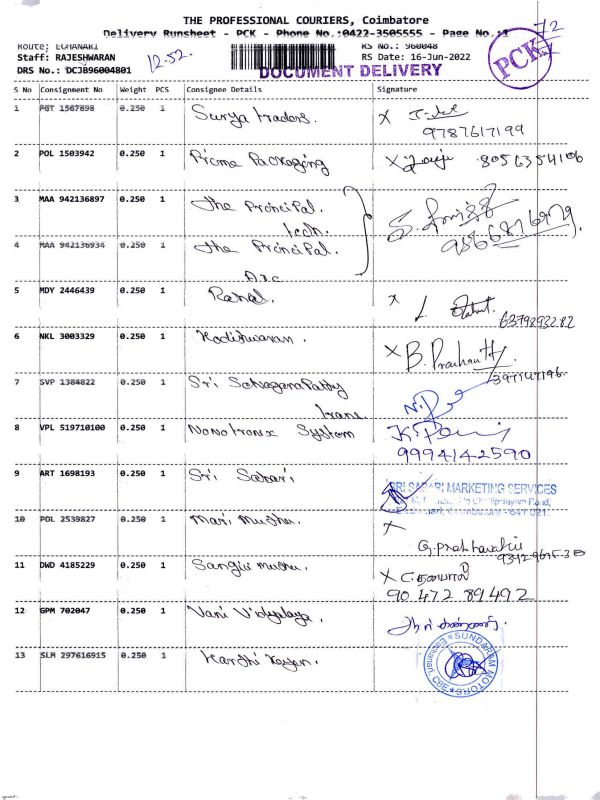 THE PROFESSIONAL COURIERS, Coimbatore
Delivery Runsheet - PCK - Phone No.:0422-3505555 - Page No.:1
72
PCK
Route: ECHANARI
RS No.: 960048
Staff: RAJESHWARAN
12.52.
RS Date: 16-Jun-2022
DRS No.: DCJB96004801
DOCUMENT DELIVERY
S No Consignment No Weight PCS Consignee Details Signature
1 PBT 1567898 0.250 1 Surya traders. X
9787617199
2 POL 1503942 0.250 1 Prime Packaging X 8056354106
3 MAA 942136897 0.250 1 the Principal.
tech.
9566876979.
4 MAA 942136934 0.250 1 the Principal.
Arc
5 MDY 2446439 0.250 1 X
6379893282
6 NKL 3003329 0.250 1 Kodishwaran. X B. Prashanth
7 SVP 1384822 0.250 1 Sri
trans.
8 VPL 519710100 0.250 1 Nonotronix System
9994142590
9 ART 1698193 0.250 1 Sri Sabari
SRI SABARI MARKETING SERVICES
10 POL 2539827 0.250 1 Mari Muthu. X
11 DWD 4185229 0.250 1 Sangili muthu. X
90 472 89492
12 GPM 702047 0.250 1 Vani Vidyalaya
13 SLM 297616915 0.250 1 Karthi Keyan.
SUNDARAM MOTORS
Eachanari, CBE